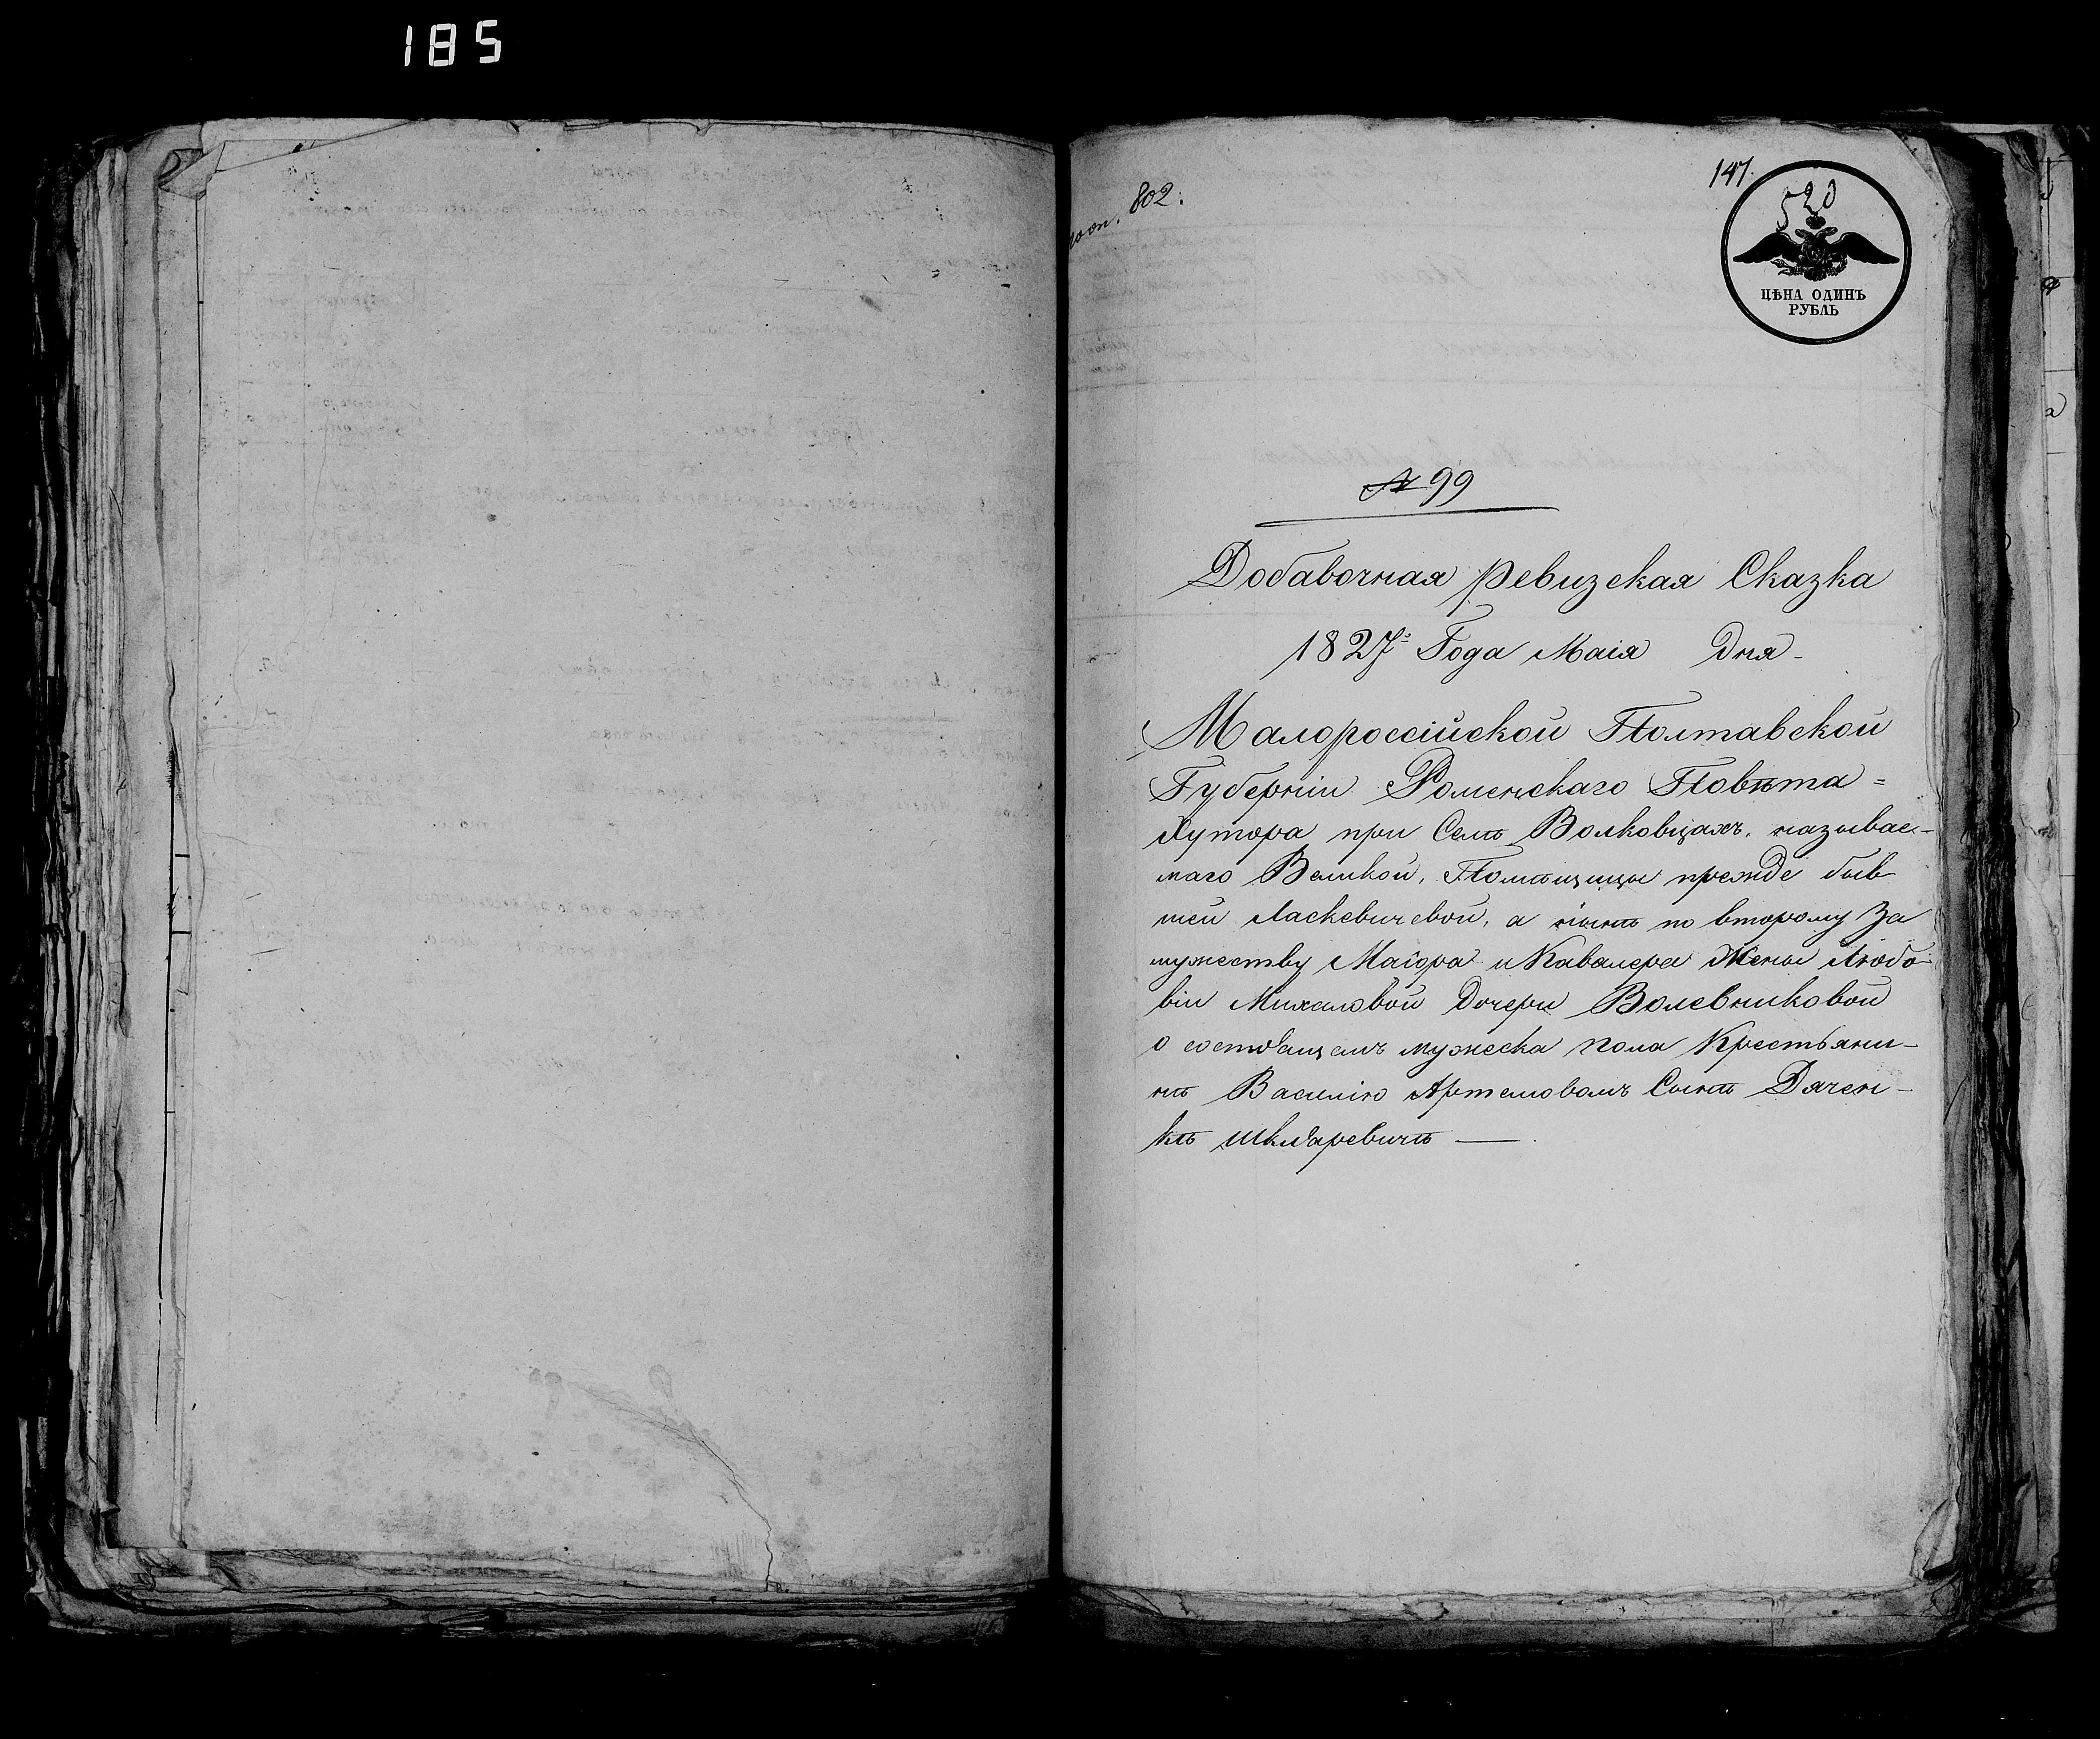 185
802.
147.
520
ЦѢНА ОДИНЪ
РУБЛЬ
№ 99
Добавочная ревизская Сказка
1827: Года Маія Дня -
Малороссійской Полтавской
Губерніи Роменскаго Повѣта =
Хутора при Селѣ Волковцахъ, называе-
маго Великой, Помѣщицы прежде быв
шей Ласкевичевой, а нынѣ по второму За
мужеству Маіора и Кавалера Жены Любо-
віи Михаловой Дочери Волевниковой
о состоящемъ мужеска пола Крестьяни-
нѣ Василію Артемовомъ Сынѣ Дячен-
кѣ Шкляревичѣ —